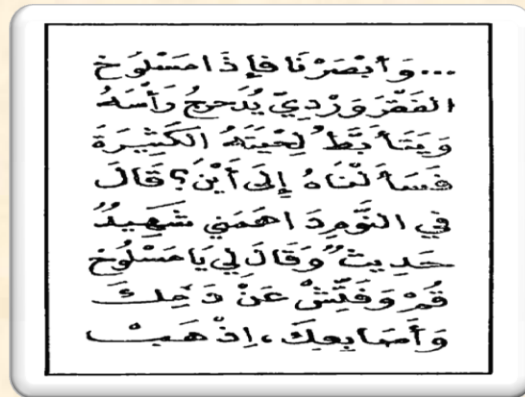 ...وَأبْصَرْنَا فَإِذَا مَسْلُوخ
الفَقْرَ وَرْدِيّ يُدَحرِجُ رَأْسَهُ
وَيَتَأبَّطُ لِحْيَتَهُ الكَثِيرَةَ
فَسَألْنَاهُ إِلَى أَيْنَ؟ قَالَ
في النَّوْمِ دَاهَمَني شَهِيدٌ
حَدِيثٌ وَقَالَ لِي يَا مَسْلُوخ
قُمْ وَفَتِّشْ عَنْ دَمِكَ
وَأَصَابِعِكَ، اِذْهَبْ